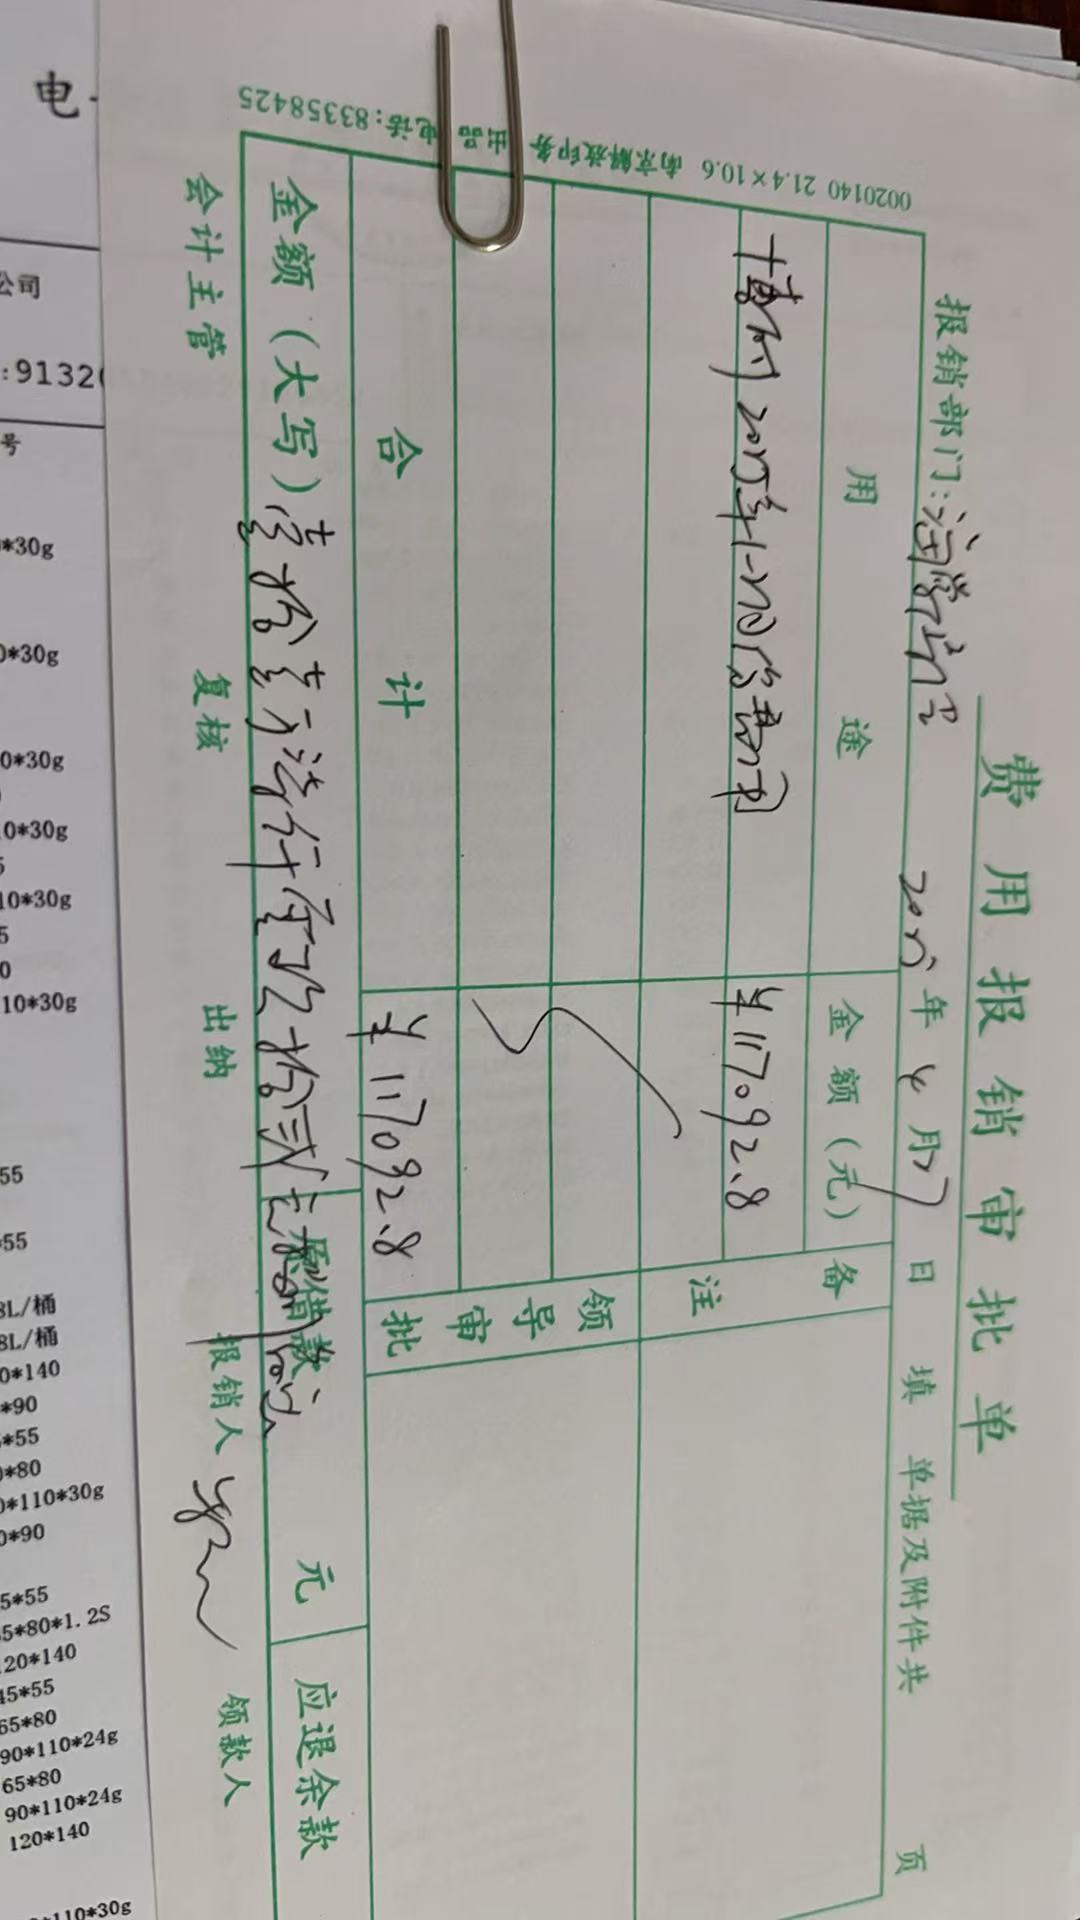 费用报销审批单
报销部门: 2025年4月7日填 单据及附件共 页
用途 金额(元) 备注
2025年1-2月 ¥117092.8
领导审批
合计 ¥117092.8
金额(大写)壹拾壹万柒仟零玖拾贰元捌角 原借款 元 应退余款
会计主管 复核 出纳 报销人 领款人
0020140 21.4×10.6 南京解放印务 出品 电话:83358425
电
公司
:9132
号
*30g
0*30g
0*30g
10*30g
5
10*30g
5
0
10*30g
55
*55
8L/桶
8L/桶
0*140
*90
*55
0*80
0*110*30g
0*90
5*55
5*80*1.2S
120*140
45*55
65*80
90*110*24g
65*80
90*110*24g
120*140
*110*30g